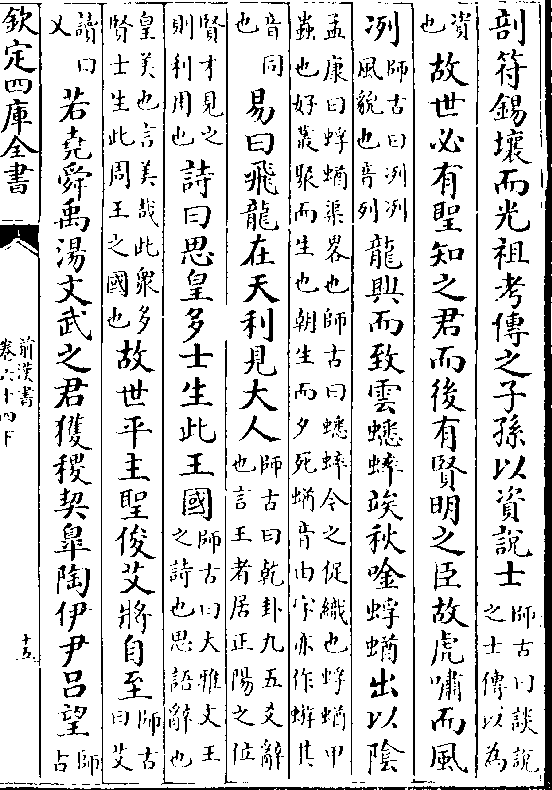 剖符錫壤而光祖考傳之子孫以資說士師古曰談說之士傳以為
資也故世必有聖知之君而後有賢明之臣故虎嘯而風
冽師古曰冽冽風貌也音列龍興而致雲蟋蟀竢秋唫蜉蝤出以陰
孟康曰蜉蝤渠畧也師古曰蟋蟀今之促織也蜉蝤甲蟲也好叢聚而生也朝生而夕死蝤音由字亦作蝣其
音同也易曰飛龍在天利見大人師古曰乾卦九五爻辭也言王者居正陽之位
賢才見之則利用也詩曰思皇多士生此王國師古曰大雅文王之詩也思語辭也
皇美也言美哉此衆多賢士生此周王之國也故世平主聖俊艾將自至師古曰艾
讀曰乂若堯舜禹湯文武之君獲稷契臯陶伊尹呂望師古
欽定四庫全書
前漢書
卷六十四下
十五